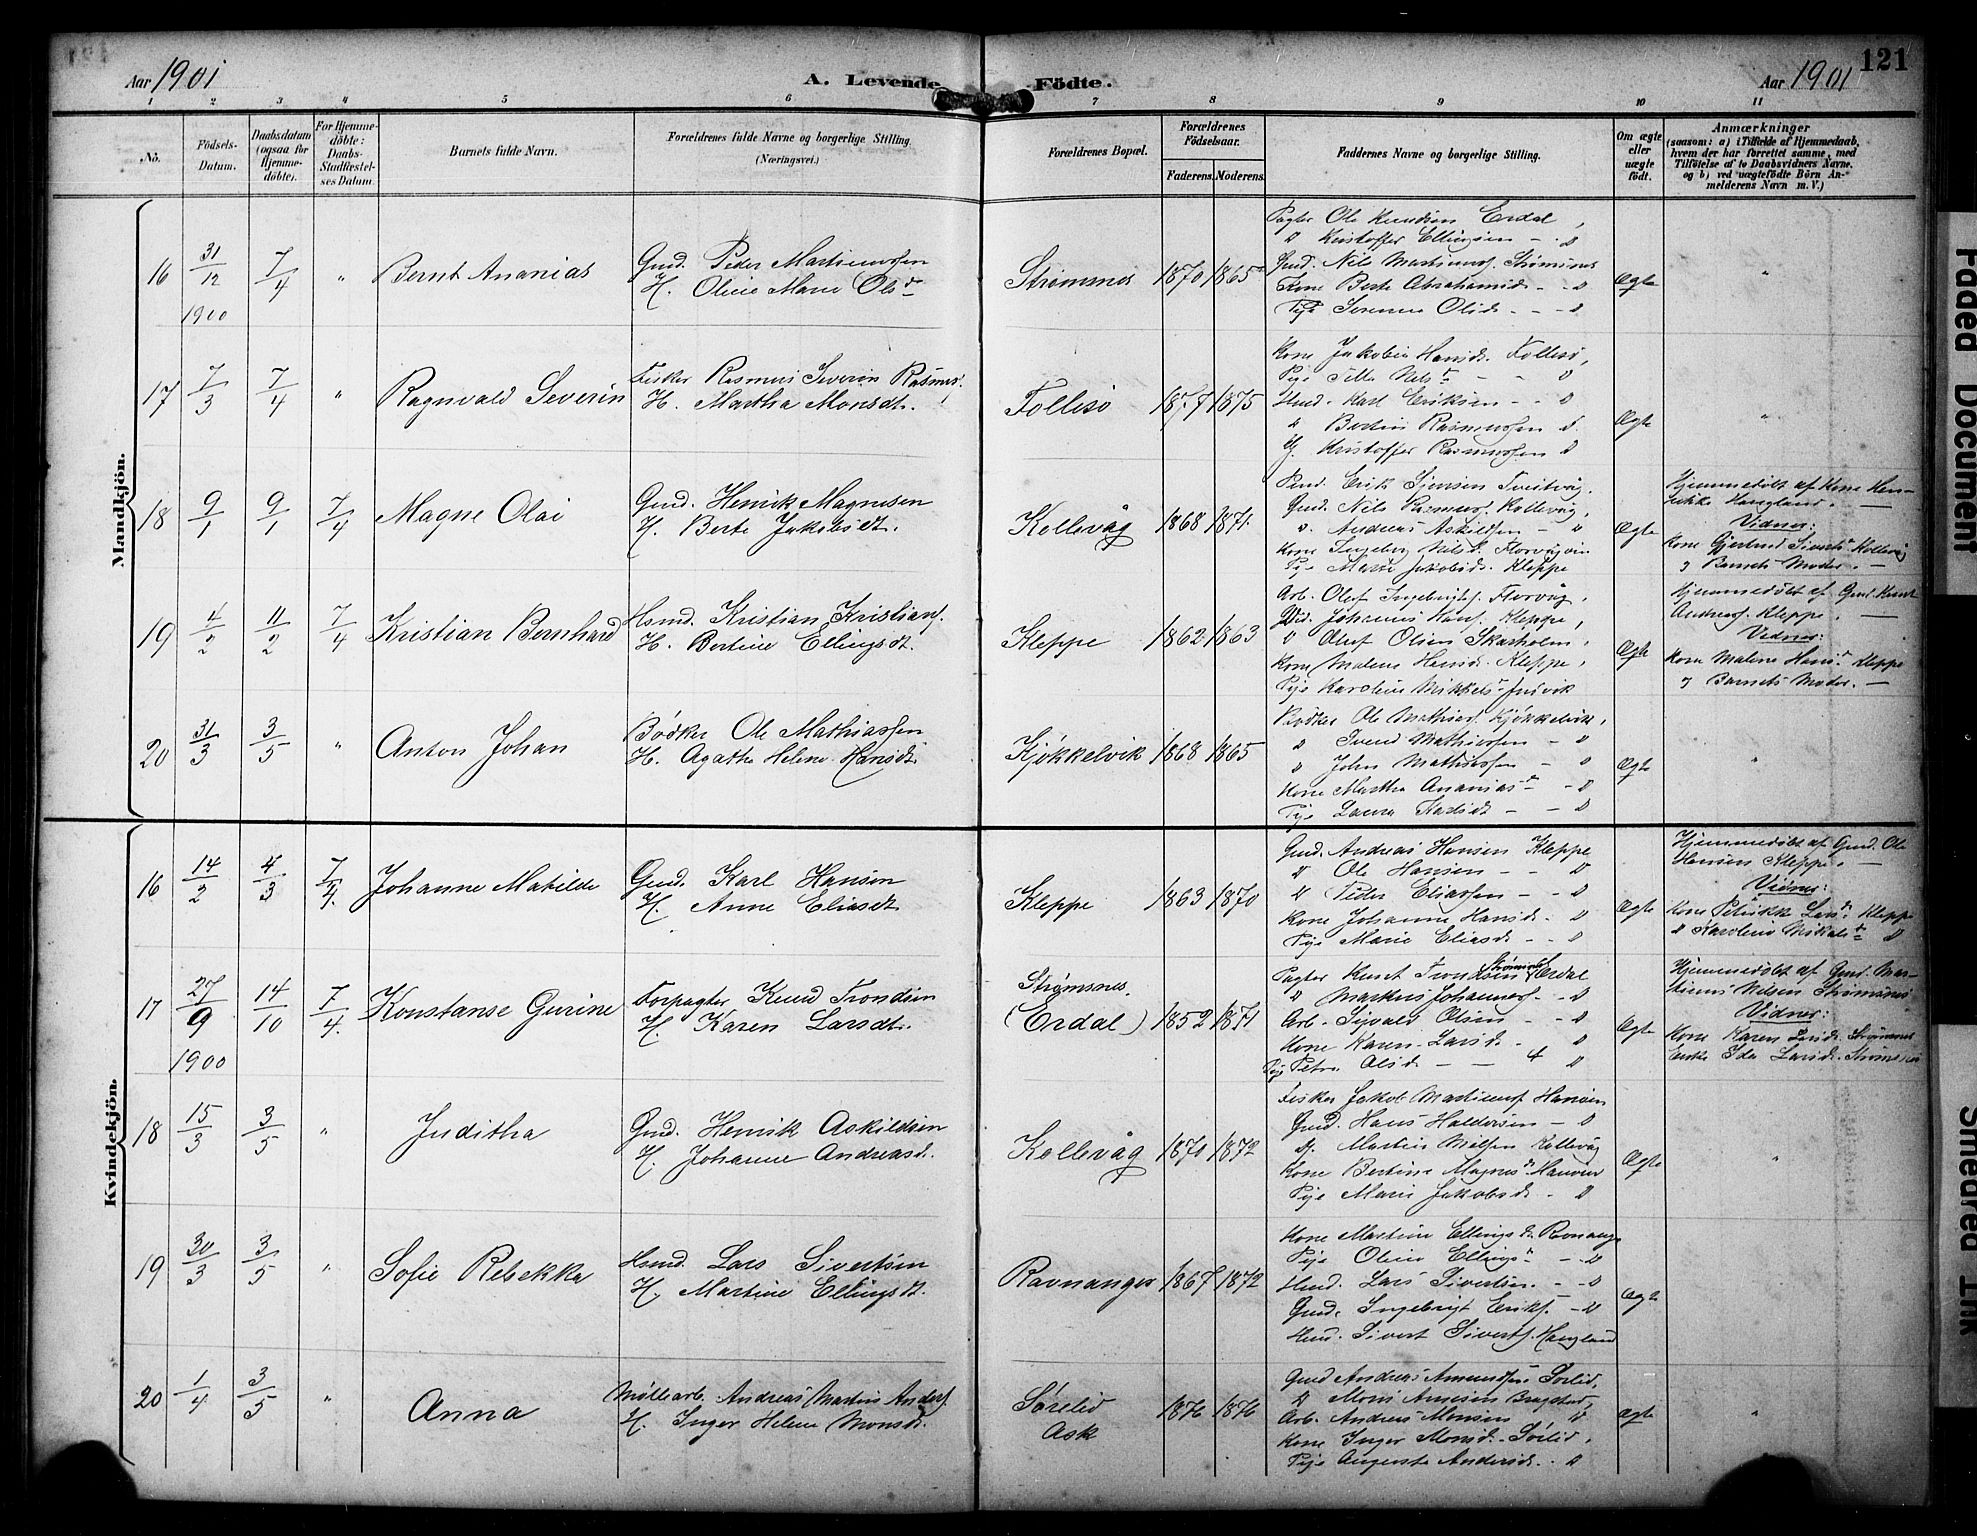 Aar 1901
A. Levende Födte.
Aar 1901
121
1 2 3 4 5 6 7 8 9 10 11
No.
Födsels-Datum.
Daabsdatum (ogsaa for Hjemmedöbte).
For Hjemmedöbte: Daabs-Stadfæstelses Datum.
Barnets fulde Navn.
Forældrenes fulde Navne og borgerlige Stilling. (Næringsvei.)
Forældrenes Bopæl.
Forældrenes Födselsaar.
Faderens. Moderens.
Faddernes Navne og borgerlige Stilling.
Om ægte eller uægte födt.
Anmærkninger
(saasom: a) i Tilfælde af Hjemmedaab, hvem der har forrettet samme, med Tilföielse af to Daabsvidners Navne, og b) ved uægtefödte Börn Anmelderens Navn m. V.)
Mandkjön.
16 31/12 1900 7/4 " Bernt Ananias
Gmd. Peder Martinussen
H. Oline Marie Olsd.
Strømsnes 1870 1865
Pagter Ole Knudsen Erdal,
" Kristoffer Ellingsen - "
Gmd. Nils Martinuss. Strømsnes
Kone Berte Abrahamsd. - "
Pige Serene Olsd. - - "
Ægte "
17 7/3 7/4 " Ragnvald Severin
Fisker Rasmus Severin Rasmus.
H. Martha Monsdt.
Follesø 1877 1875
Kone Jakobie Hansd. Follesø,
Pige Nels - - "
Karl Eriksen - - "
" Bertin Rasmussen "
Kristoffer Rasmussen "
Ægte "
18 9/1 9/1 7/4 Magne Olai
Gmd. Henrik Magnesen
H. Berte Jakobsdt.
Kollevåg 1868 1871
Erik Simsen Tveitvåg,
Gmd. Nils Rasmus. Kollevåg,
" Andreas Askildsen - "
Kone Ingeborg Nilsd. Florvåg
Pige Marie Jakobsd. Kleppe
Ægte
Hjemmedöbt af Kone Hen-
rikke Haugland. —
Vidner:
Kone Gjertrud Siverts Kollevåg
og Barnets Moder. —
19 4/2 11/2 7/4 Kristian Bernhard
Hsmd. Kristian Kristians.
H. Bertine Ellingsdt.
Kleppe 1862 1863
Arb. Oluf Ingebrigts. Florvåg,
Johannes Hans. Kleppe,
" Oluf Olsen Skarholm,
Kone Malene Hansd. Kleppe,
Pige Karoline Mikkels. Juvik
Ægte
Hjemmedöbt af Gmd. Knut
Andreass. Kleppe. —
Vidner:
Kone Malene Hans. Kleppe
og Barnets Moder. —
20 31/3 3/5 " Anton Johan
Bödker Ole Mathiassen
H. Agathe Helene Hansdt.
Kjøkkelvik 1868 1865
Bødker Ole Mathias. Kjøkkelvik,
" Svend Mathiassen - "
" John Mathiassen - "
Kone Martha Ananias - "
Pige Laura - - "
Ægte "
Kvindekjön.
16 14/2 4/3 7/4. Johanne Matilde
Gmd. Karl Hansen
H. Anne Eliasdt.
Kleppe 1863 1870
Gmd. Andreas Hansen Kleppe
" Ole Hansen - - "
" Peder Eliassen - - "
Kone Johanne Hansd. - "
Pige Marie Eliasd. - - "
Ægte
Hjemmedöbt af Gmd. Ole
Hansen Kleppe. —
Vidner:
Kone Petrikke Lars. Kleppe
" Karoline Mikals "
17 27/9 1900 14/10 7/4. Konstanse Gurine
Forpagter Knud Trondsen
H. Karen Larsdt.
Strømsnes.
(Erdal) 1852 1871
Strømsnes
Pagter Knut Trondsen Erdal
" Markus Johanness. - "
Arb. Sivald Olsen - - "
Kone Karen Larsd. - "
Pige Petra Olsd. - - "
Ægte
Hjemmedöbt af Gmd. Mar-
tinus Nilsen Strømsnes
Vidner:
Kone Karen Larsd. Strømsnes
Enke Ida Larsd. Strømsnes
18 15/3 3/5 " Juditha
Gmd. Henrik Askildsen
H. Johanne Andreasd.
Kollevåg 1870 1872
Fisker Jakob Martinus Hanøen
Gmd. Hans Haldorsen - "
Martin Nilsen Kollevåg
Kone Bertine Magnesd. Hanøen
Pige Marie Jakobsd. - "
Ægte "
19 30/3 3/5 " Sofie Rebekka
Hsmd. Lars Sivertsen
H. Martine Ellingsdt.
Ravnanger 1867 1872
Kone Martine Ellingsd. Ravnange
Pige Oline Ellings - "
Hsmd. Lars Sivertsen - - "
Gmd. Ingebrigt Eriks. - "
Hsmd. Sivert Siverts. Haugland
ægte
20 1/4 3/5 " Anna
Møllearb. Andreas Martin Anders.
H. Inger Helene Monsd.
Sørelid
Ask 1876 1876
Gmd Andreas Amundsen Sørlid,
" Mons Arnesen
Arb. Andreas Monsen "
Kone Inger Monsd. Sørlid,
Pige Augusta Andersd. "
ægte "
Faded Document
Smeared Ink